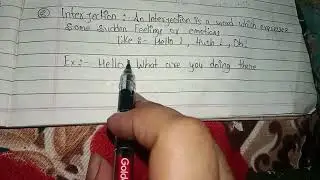 ⑧ Interjection : An Interjection is a word which expresses
some sudden feelings or emotions.
Like :- Hello !, Hush !, Oh!
Ex:- Hello What are you doing there
Gold